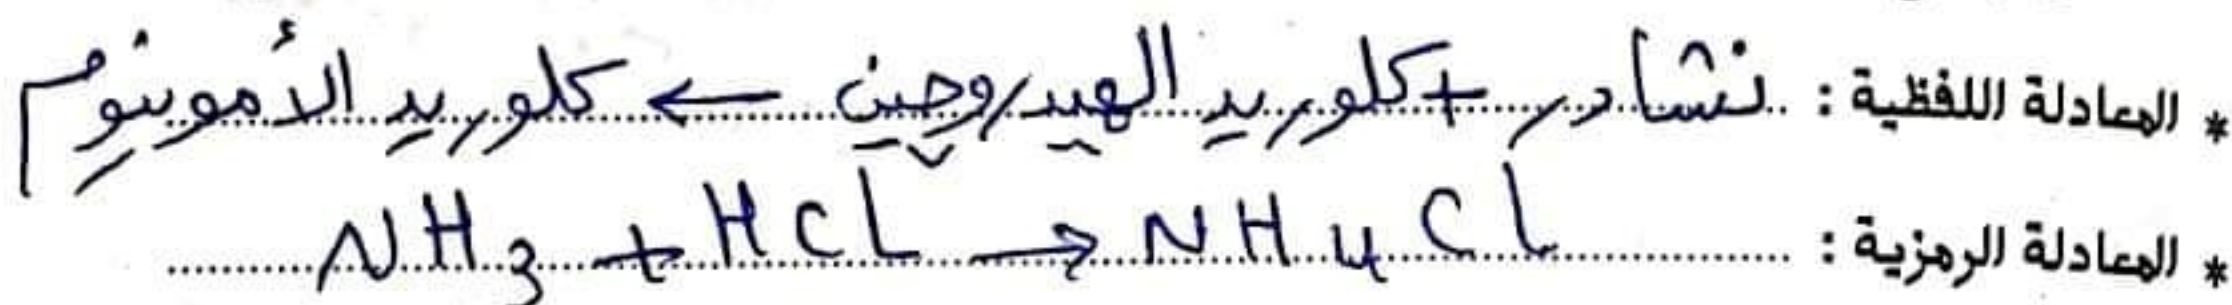 * المعادلة اللفظية : نشادر + كلوريد الهيدروجين ← كلوريد الأمونيوم
* المعادلة الرمزية : NH3 + HCl → NH4Cl